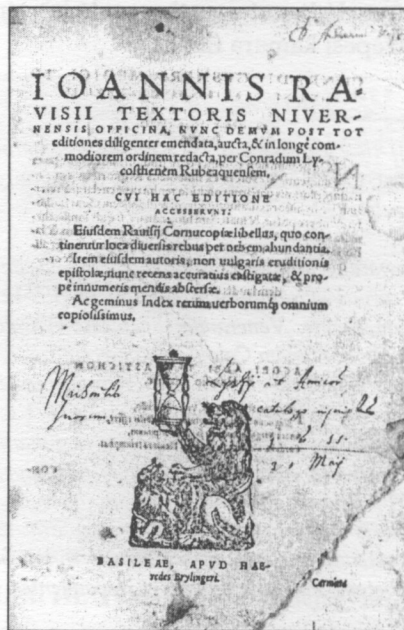 IOANNIS RA-
VISII TEXTORIS NIVER-
NENSIS OFFICINA, NVNC DEMVM POST TOT
editiones diligenter emendata, aucta, & in longè com-
modiorem ordinem redacta, per Conradum Ly-
costhenem Rubeaquensem.
CVI HAC EDITIONE
ACCESSERVNT:
Eiusdem Rauisij Cornucopiæ libellus, quo con-
tinentur loca diuersis rebus per orbem abundantia.
Item eiusdem autoris, non vulgaris eruditionis
epistolæ, nunc recens accuratius castigatæ, & pro-
pè innumeris mendis abstersæ.
Ac geminus Index rerum verborumq́; omnium
copiosissimus.
et Amicor
catalogo
Maij
BASILEAE, APVD HAE-
redes Brylingeri.